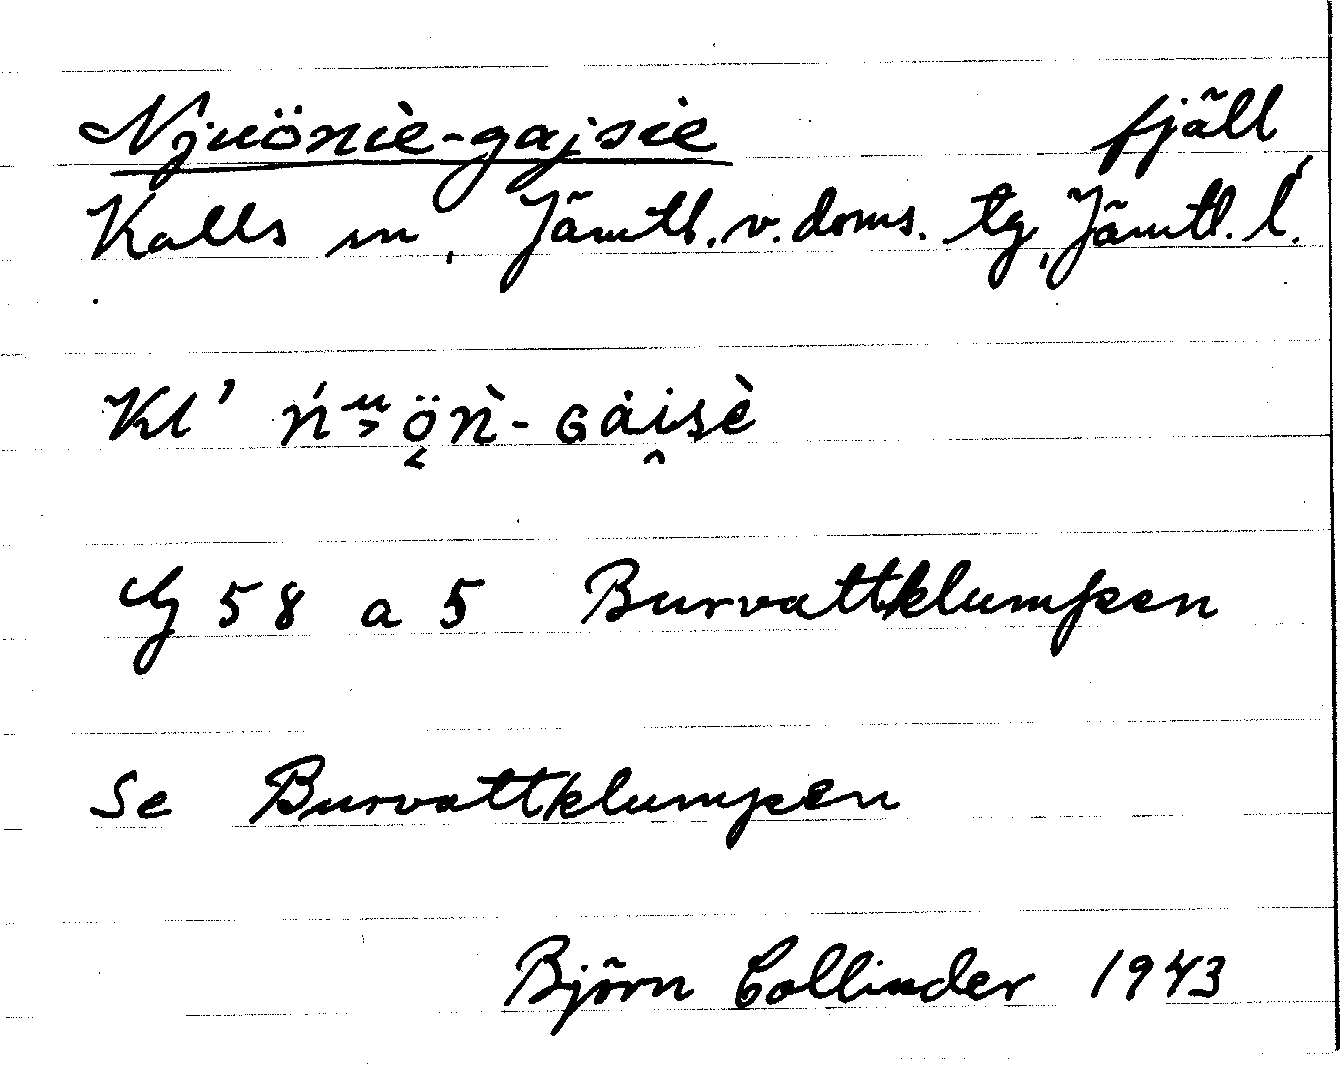 Njuönie-gajsie fjäll,
Kalls sn, Jämtl. v. doms. tg, Jämtl. l.
Kl' ń ᵘöǹ-ɢȧi̭sè
G 58 a 5 Burvattklumpen
Se Burvattklumpen
Björn Collinder 1943